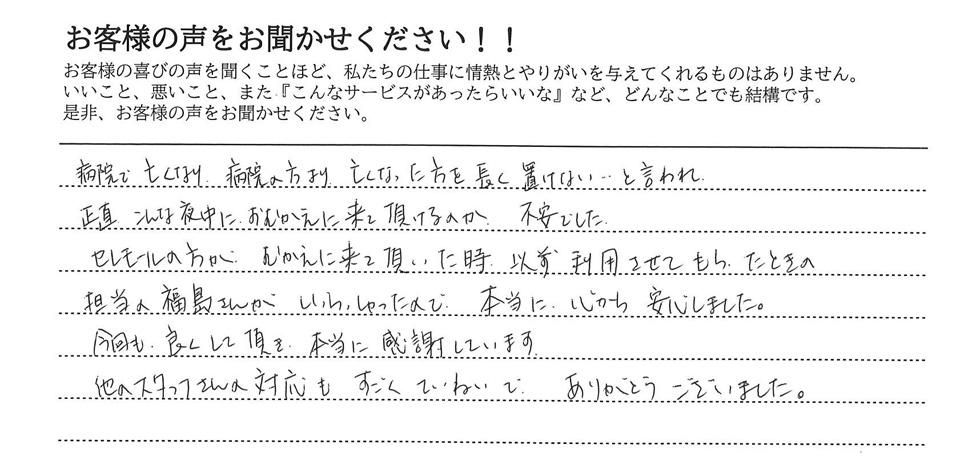 お客様の声をお聞かせください！！
お客様の喜びの声を聞くことほど、私たちの仕事に情熱とやりがいを与えてくれるものはありません。
いいこと、悪いこと、また『こんなサービスがあったらいいな』など、どんなことでも結構です。
是非、お客様の声をお聞かせください。
病院で亡くなり、病院の方より、亡くなった方を長く置けない…と言われ、
正直こんな夜中に、おむかえに来て頂けるのか、不安でした。
セレモールの方が、むかえに来て頂いた時、以前利用させてもらったときの
担当の福島さんがいらっしゃったので、本当に、心から安心しました。
今回も、良くして頂き、本当に感謝しています。
他のスタッフさんの対応もすごくていねいで、ありがとうございました。